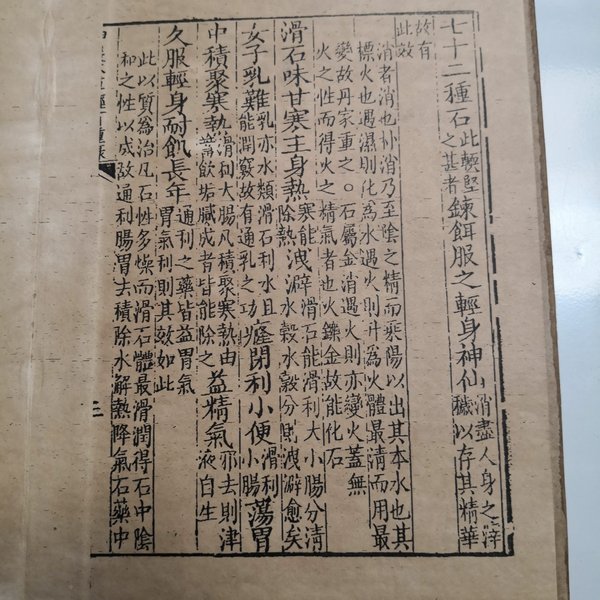 七十二種石此類堅之甚者鍊餌服之輕身神仙消盡人身之滓穢以存其精華
故有此效
消者消也朴消乃至陰之精而乘陽以出其本水也其
標火也遇濕則化為水遇火則升為火體最清而用最
變故丹家重之○石屬金消遇火則亦變火蓋無
火之性而得火之精氣者也火鑠金故能化石
滑石味甘寒主身熱寒能除熱洩澼滑石能滑利大小腸分清水穀水穀分則洩澼愈矣
女子乳難乳亦水類滑石利水且能潤竅故有通乳之功癃閉利小便滑利小腸蕩胃
中積聚寒熱滑利大腸凡積聚寒熱由蓄飲垢膩成者皆能除之益精氣邪去則津液自生
久服輕身耐飢長年通利之藥皆益胃氣胃氣利則其效如此
此以質為治凡石性多燥而滑石體最滑潤得石中陰
和之性以成故通利腸胃去積除水解熱降氣石藥中
三